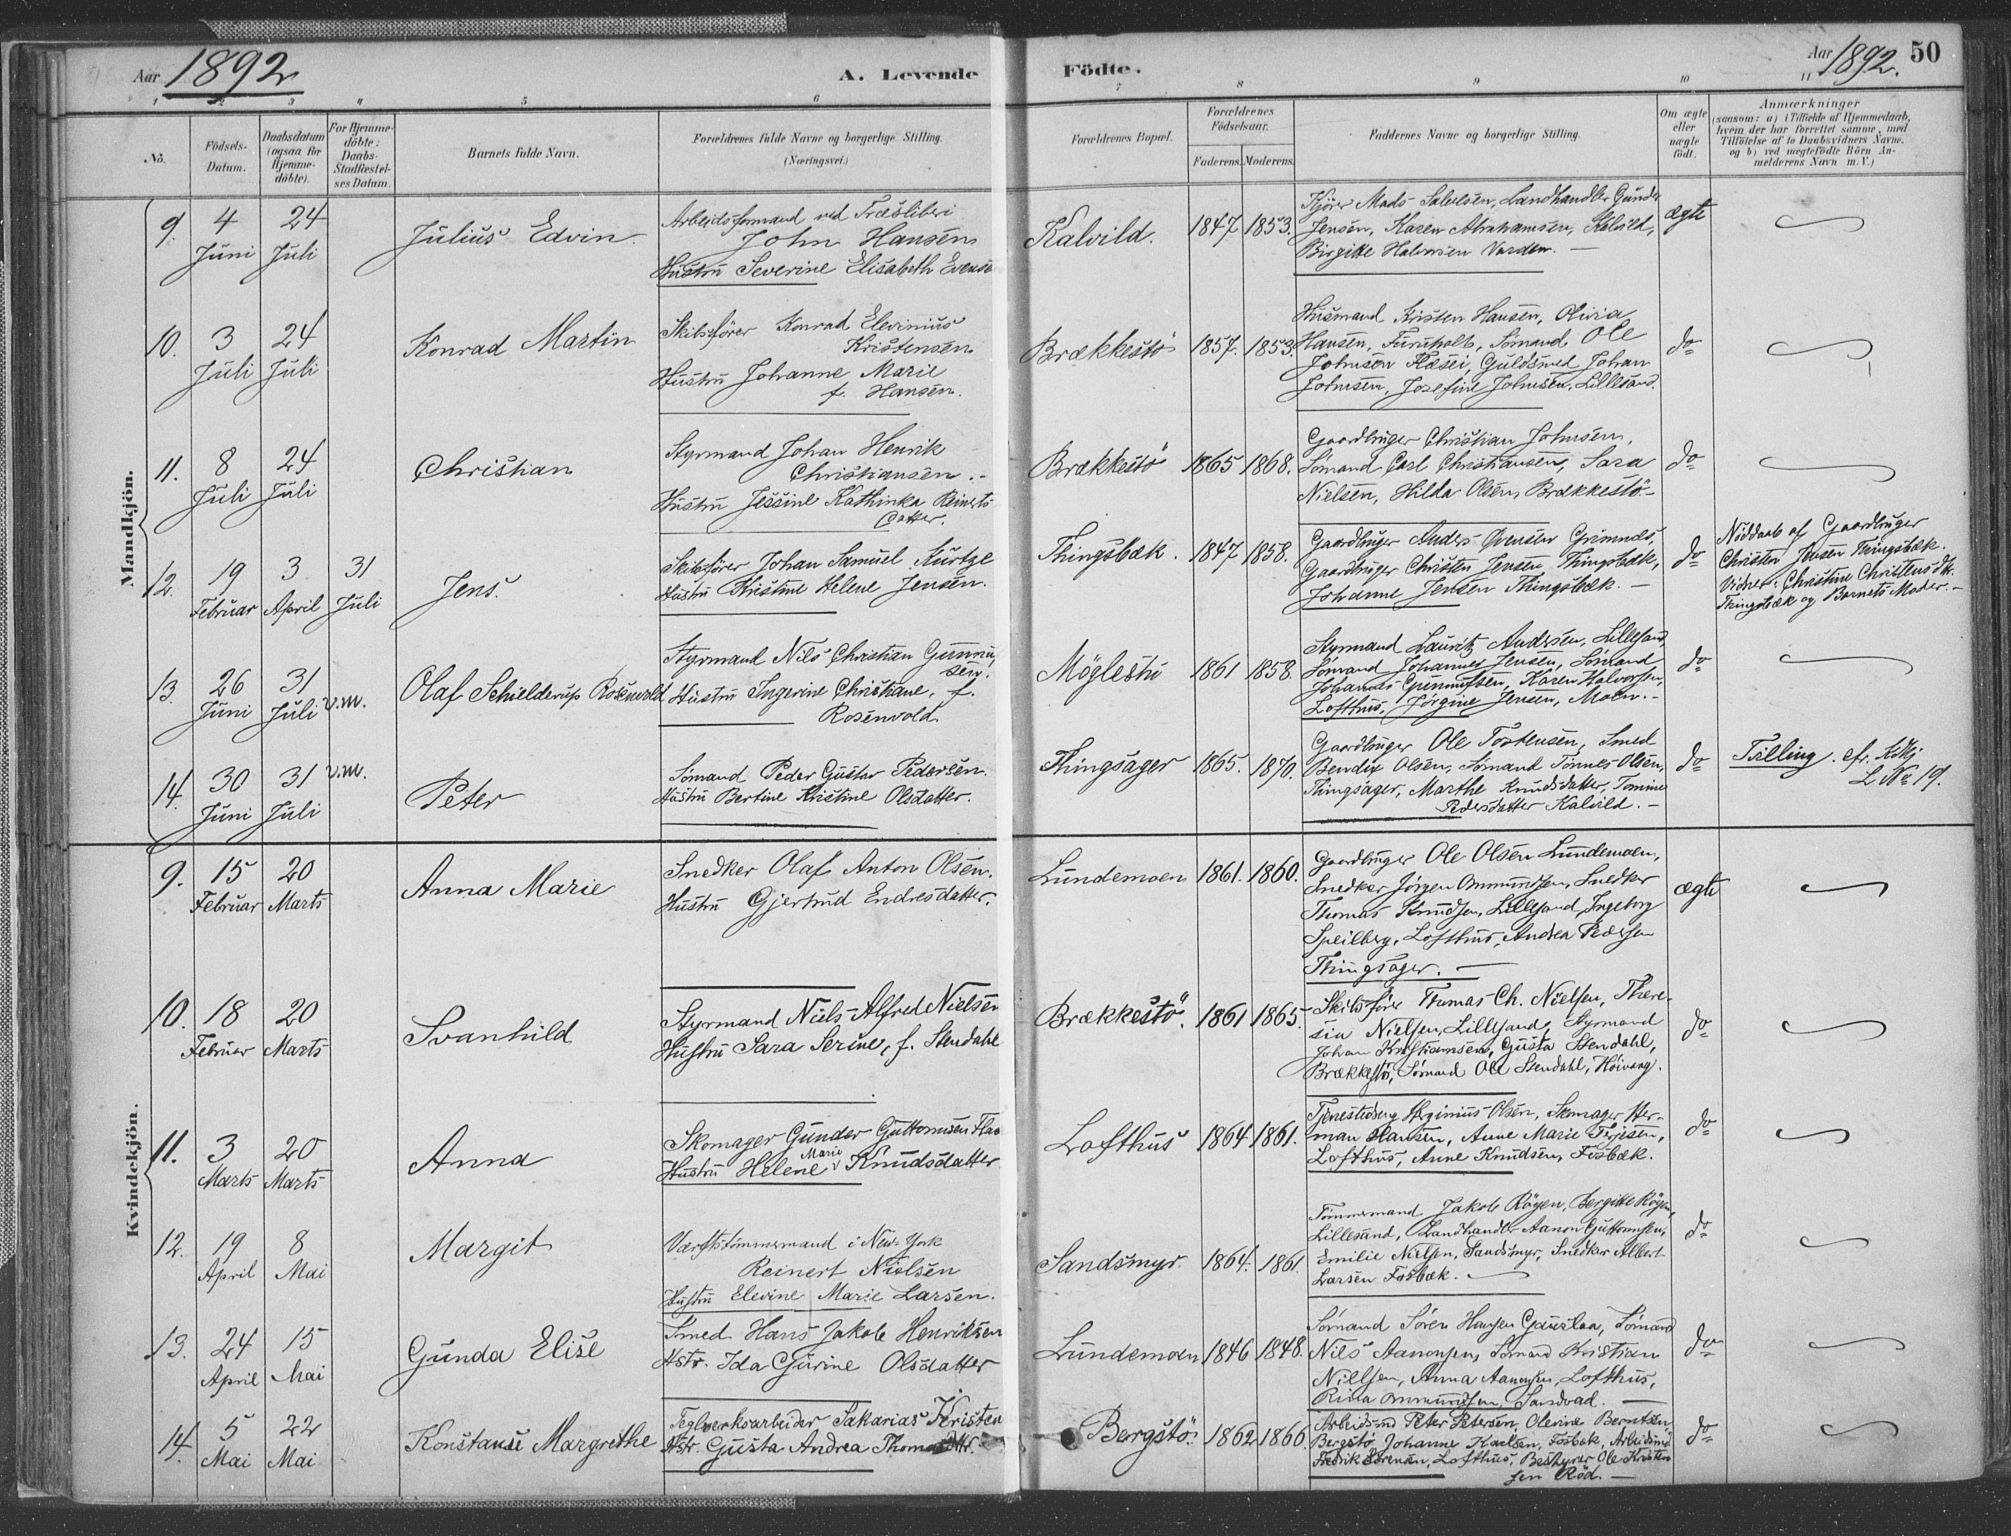 Aar 1892
A. Levende Födte.
Aar 1892. 50
1 2 3 4 5 6 7 8 9 10 11
No.
Födsels-
Datum.
Daabsdatum
(ogsaa for
Hjemme-
döbte).
For Hjemme-
döbte:
Daabs-
Stadfæstel-
ses Datum.
Barnets fulde Navn.
Forældrenes fulde Navne og borgerlige Stilling.
(Næringsvei.)
Forældrenes Bopæl.
Forældrenes
Födselsaar.
Faderens. Moderens.
Faddernes Navne og borgerlige Stilling.
Om ægte
eller
uægte
født.
Anmærkninger
(saasom: a) i Tilfælde af Hjemmedaab,
hvem der har forrettet samme, med
Tilföielse af to Daabsvidners Navne,
og b) ved uægtefödte Börn An-
melderens Navn m. V.)
Mandkjön.
9. 4 Juni 24 Juli Julius Edvin.
Arbeidsformand ved Træsliberi
John Hansen
Hustru Severine Elisabeth Evense
Kalvild. 1847 1853.
Kjører Mads Salvesen, Landhandler Gunder
Jensen, Karen Abrahamsen, Kalvild,
Birgitte Halvorsen Varden. —
ægte
10. 3 Juli 24 Juli Konrad Martin
Skibsfører Konrad Elevinius
Kristensen
Hustru Johanne Marie
f. Hansen.
Brækkestö 1857. 1853.
Husmand Kristen Hansen, Olivia
Hansen, Furuholt, Sømand Ole
Johnson Kæsei, Guldsmed Johan
Johnsen, Josefine Johnsen, Lillesand.
do
11. 8 Juli 24 Juli Christian
Styrmand Johan Henrik
Christiansen.
Hustru Jessine Kathinka Reinerts
Datter.
Brækkestö 1865 1868.
Gaardbruger Christian Johnsen,
Sømand Carl Christiansen, Sara
Nielsen, Hilda Olsen, Brækkestö
do
12. 19 Februar 3 April 31 Juli Jens.
Skibsfører Johan Samuel Kurtze
Hustru Kristine Helene Jensen.
Thingsbæk. 1847 1858.
Gaardbruger Anders Evensen Grimnes,
Gaardbruger Christen Jensen Thingsbæk,
Johanne Jensen Thingsbæk. —
do
Nøddaab af Gaardbruger
Christen Jensen Thingsbæk.
Vidner: Christine Christensdtr.
Thingsbæk og Barnets Moder. —
13. 26 Juni 31 Juli v.m. Olaf Schielderup Rosenvold
Styrmand Nils Christian Gunnu
sen.
Hustru Ingerine Christiane, f.
Rosenvold
Möglestu 1861 1858.
Styrmand Lauritz Andersen, Lillesand,
Sømand Johannes Jensen, Sømand
Johannes Gunnufsen, Karen Halvorsen,
Lofthus, Jørgine Jensen, Moen. —
do
14. 30 Juni 31 Juli v.m. Peter
Sømand Peder Gustav Pedersen.
Hustru Bertine Kristine Olsdatter.
Thingsager 1865. 1870.
Gaardbruger Ole Tostensen, Smed
Bendix Olsen, Sømand Tønnes Olsen,
Thingsager, Marthe Knudsdatter, Tomine
Pedersdatter Kalvild. —
do
Tvilling. cfr. Kvkj
L No 19.
Kvindekjön.
9. 15 Februar 20 Marts Anna Marie
Snedker Olaf Anton Olsen.
Hustru Gjertrud Endresdatter.
Lundemoen 1861. 1860.
Gaardbruger Ole Olsen Lundemoen,
Snedker Jörgen Ommundsen, Snedker
Thomas Knudsen, Lillesand, Ingeborg
Speilberg, Lofthus, Andrea Pedersen
Thingsager. —
ægte
10. 18 Februar 20 Marts Svanhild
Styrmand Niels Alfred Nielsen
Hustru Sara Serine, f. Stendahl
Brækkestö. 1861 1865.
Skibsfører Thomas Ch. Nielsen, There-
sia Nielsen, Lillesand, Styrmand
Johan Kristiansen, Gusta Stendahl,
Brækkestø, Sømand Ole Stendahl, Höivaag.
do
11. 3 Marts 20 Marts Anna
Skomager Gunder Guttormsen Flaa
Hustru Helene Marie Knudsdatter
Lofthus 1864 1861.
Tjenestedreng Herginius Olsen, Skomager Her-
man Hansen, Anne Marie Terjesen,
Lofthus, Anne Knudsen, Fosbæk.
do
12. 19 April 8 Mai Margit
Værftstømmermand i New-York
Reinert Nielsen
Hustru Elevine Marie Larsen.
Sandsmyr. 1864. 1861.
Tømmermand Jakob Röyen, Bergitte Röyen,
Lillesand, Landhandler Aanon Guttormsen,
Emilie Nielsen, Sandsmyr, Snedker Albert
Larsen Fosbæk. —
do
13. 24 April 15 Mai Gunda Elise
Smed Hans Jakob Henriksen
Hstr. Ida Gurine Olsdatter
Lundemoen 1846 1848.
Sømand Søren Hansen Gaustaa, Sømand
Niels Aanonsen, Sømand Kristian
Nielsen, Anna Aanonsen, Lofthus,
Rina Ommundsen, Sandvad. —
do
14. 5 Mai 22 Mai Konstanse Margrethe
Teglverksarbeider Sakarias Kristen
Hstr. Gusta Andrea Thomasdtr.
Bergstö. 1862 1866.
Arbeidsmd Peter Petersen, Olevine Berntsen
Bergstø, Johanne Karlsen, Fosbæk, Arbeidsmd
Fredrik Sørensen, Lofthus, Bestyrer Ole Kristen
sen Röd. —
do